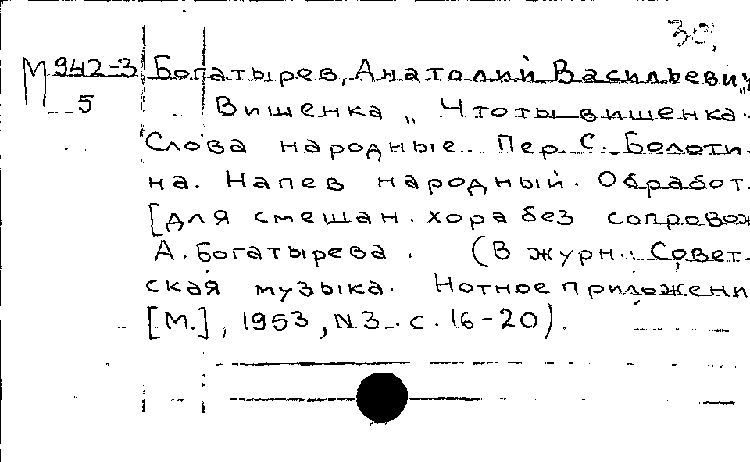 30,
М 942-3 Богатырев, Анатолий Васильевич
5 Вишенка „ Что ты вишенка.
Слова народные. Пер. С. Болоти-
на. Напев народный. Обработ.
[для смешан. хора без сопровож
А. Богатырева. (В журн.: Совет-
ская музыка. Нотное приложени
[М.], 1953, N 3. с. 16-20).